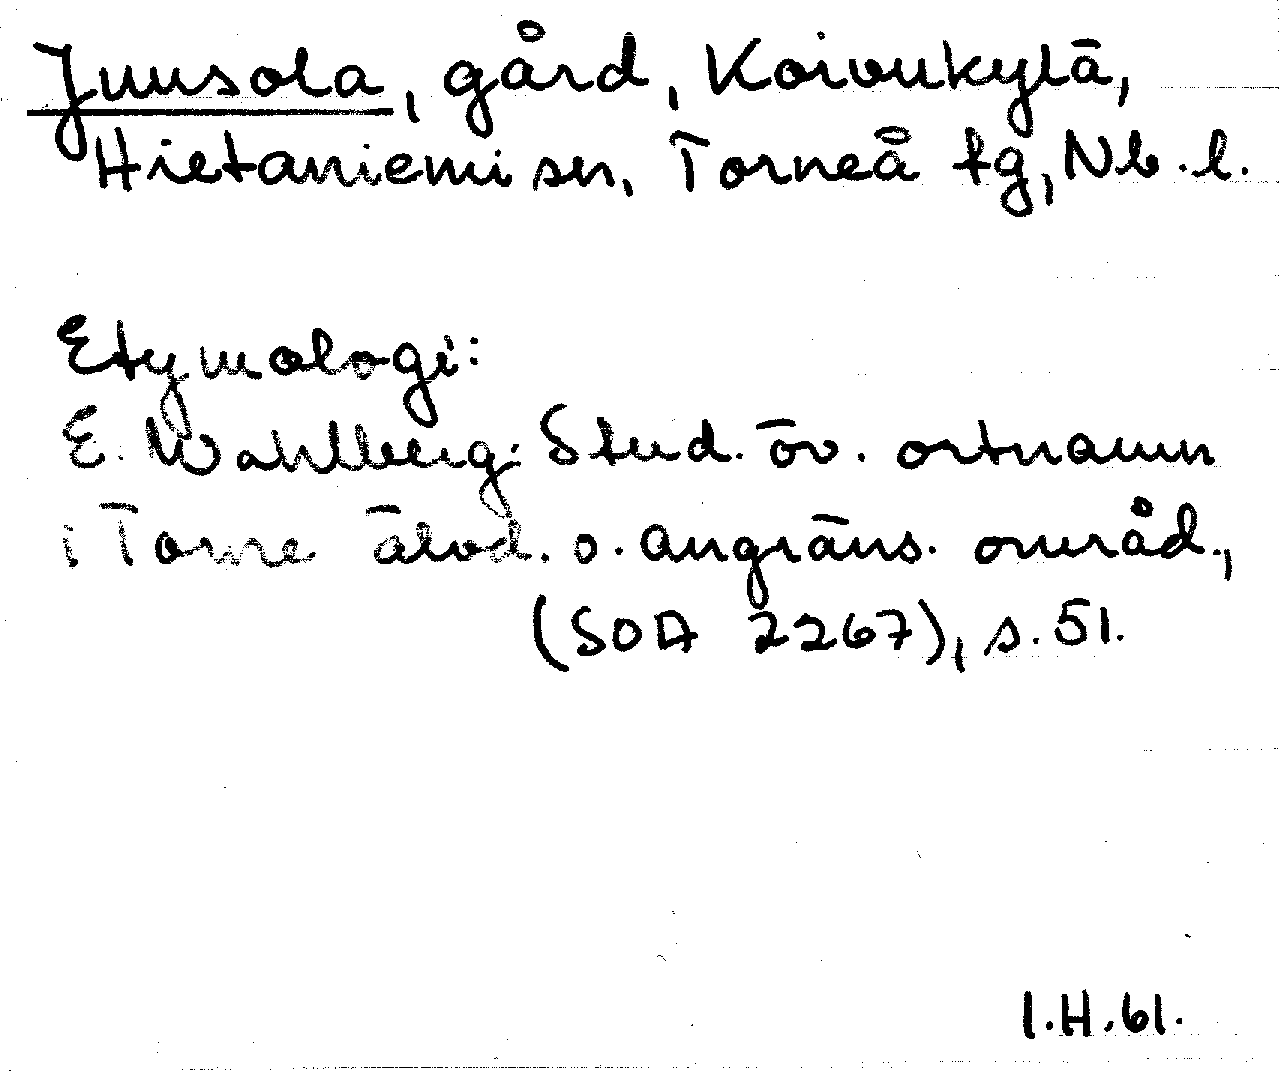 Juusola, gård, Koivukylä,
Hietaniemi sn, Torneå tg, Nb. l.
Etymologi:
E. Wahlberg: Stud. öv. ortnamn
i Torne älvd. o. angräns. områd.,
(SOA 2267), s. 51.
I.H.61.